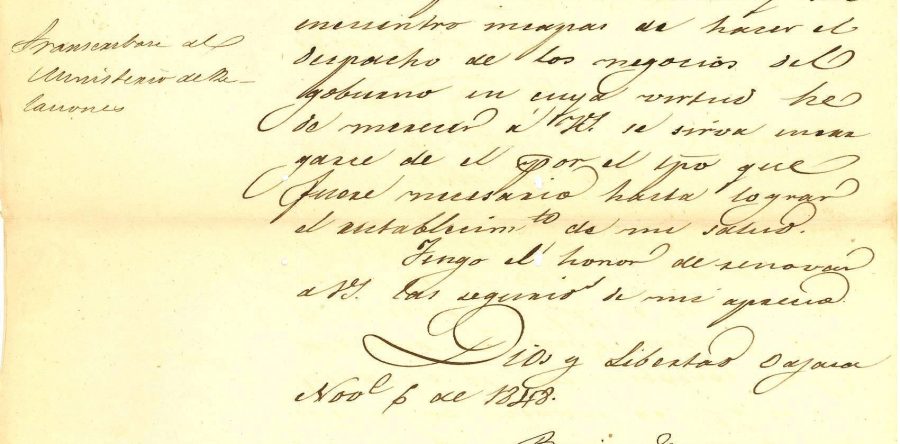 Transcribase al
Ministerio de Re-
laciones
encuentro incapas de hacer el
despacho de los negocios del
gobierno en cuya virtud he
de merecer á V.S. se sirva encar
garse de el por el tpô que
fuere necesario hasta lograr
el restablecimto de mi salud.
Tengo el honor de renovar
a V.S. las segurids de mi aprecio.
Dios y Libertad Oajaca
Nove 6 de 1848.